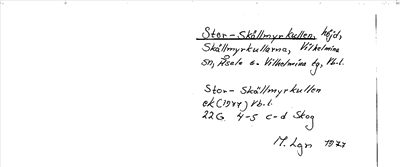 Stor-Skållmyrkullen, höjd,
Skållmyrkullarna, Vilhelmina
sn, Åsele o. Vilhelmina tg, Vb.l.
Stor-Skållmyrkullen
ek (1977) Vb.l.
22G 4-5 c-d Skog
M. Lgr 1977